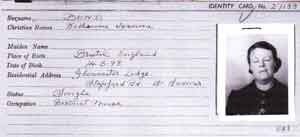 IDENTITY CARD, No 2/133
Surname
Christian Names Katharine Joanna
Maiden Name
Place of Birth Bristol England
Date of Birth 14.8.98
Residential Address Gloucester Lodge,
Rd. St.
Status Single
Occupation District Nurse